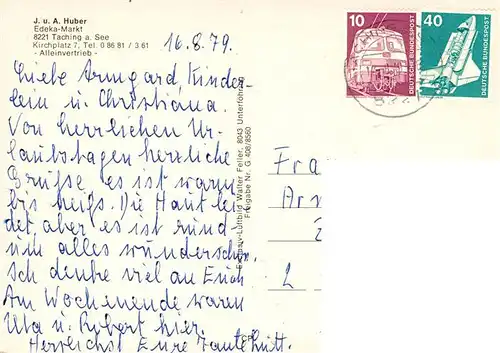 J. u. A. Huber
Edeka-Markt
8221 Taching a. See
Kirchplatz 7, Tel. 0 86 81 / 3 61
- Alleinvertrieb -
16.8.79.
Liebe Armgard Kinder-
lein u. Christiana.
Von herrlichen Ur-
laubstagen herzliche
Grüße, es ist warm
bis heiß. Die Haut lei-
det, aber es ist rund-
um alles wunderschön.
Ich denke viel an Euch
Am Wochenende waren
Uta u. Robert hier.
Herzlichst Eure Tante
-Luftbild Walter Feller, 8043 Unterföhring
Freigabe Nr. G 408/8560
10
DEUTSCHE BUNDESPOST
40
DEUTSCHE BUNDESPOST
Fra
Ar